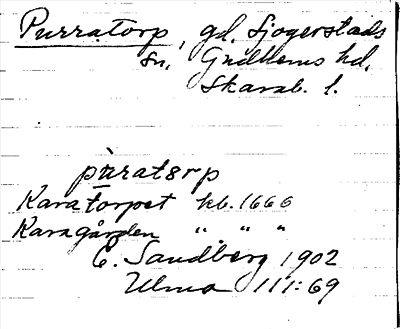 Purratorp, gd. Sjogerstads
sn. Gudhems hd.
Skarab. l.
pùratorp
Karatorpet kb. 1666
Karagården " " "
E. Sandberg 1902
Ulma 111:69